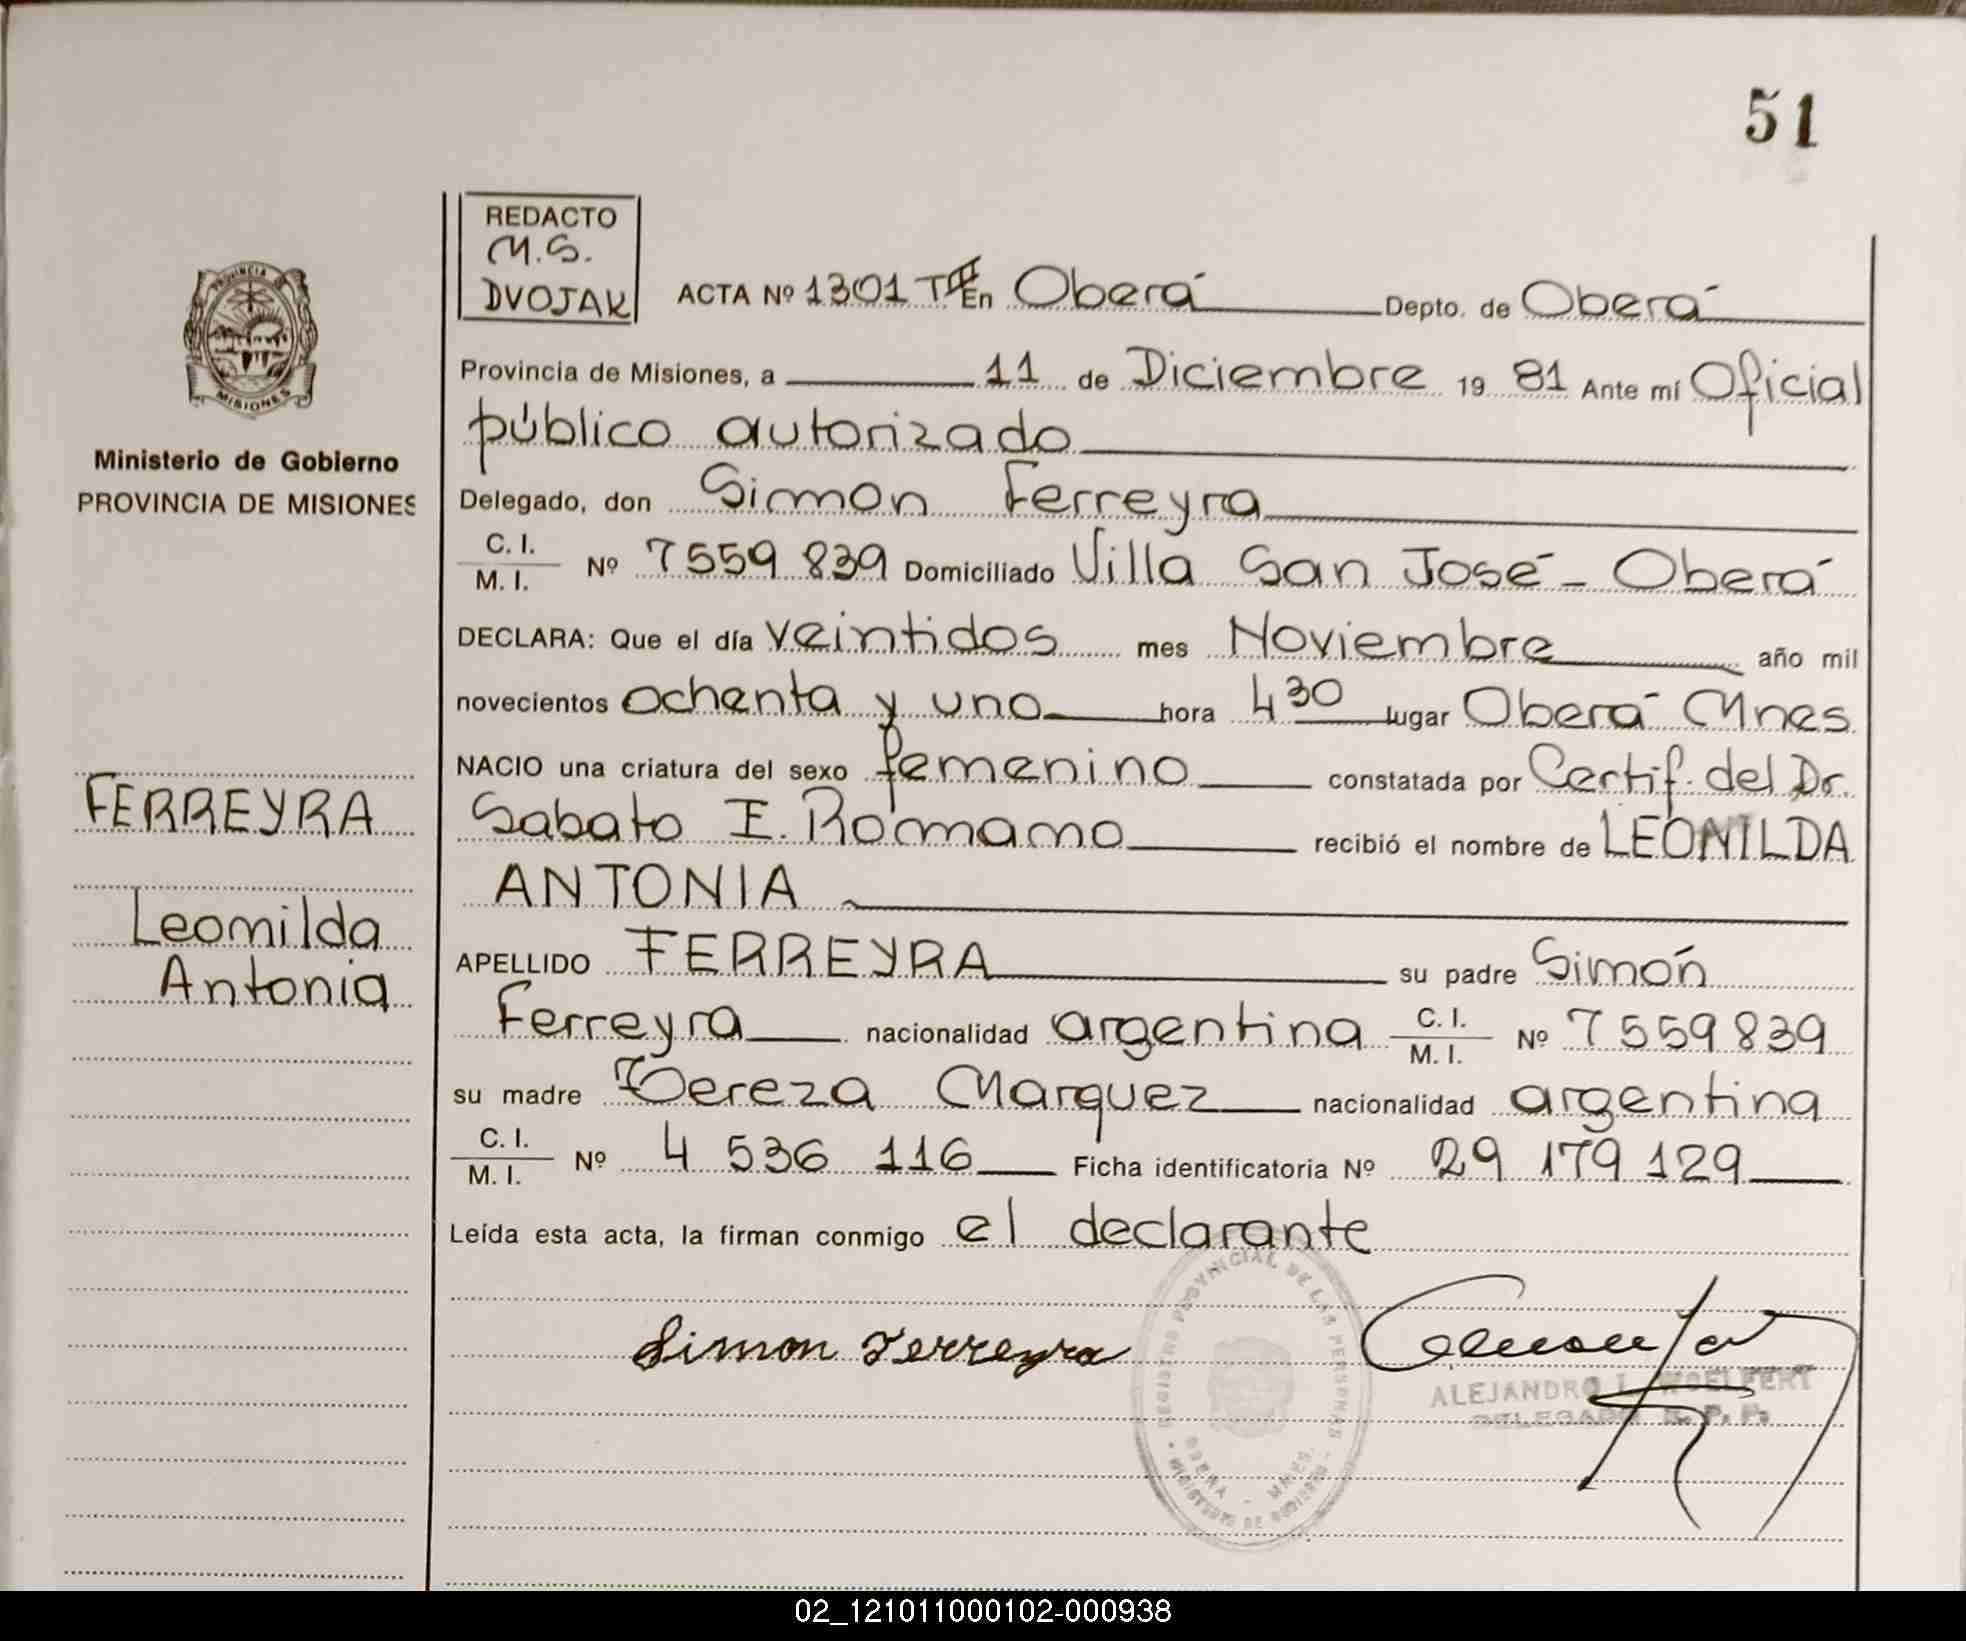 51
REDACTO
M.S.
DVOJAK
ACTA Nº 1301 En Oberá Depto. de Oberá
Provincia de Misiones, a 11 de Diciembre 19 81 Ante mí Oficial
público autorizado
Ministerio de Gobierno
PROVINCIA DE MISIONES
Delegado, don Simon Ferreyra
C. I.
M. I. Nº 7559 839 Domiciliado Villa San José - Oberá
DECLARA: Que el día veintidos mes Noviembre año mil
novecientos ochenta y uno hora 4 30 lugar Oberá Mnes
NACIO una criatura del sexo femenino constatada por Certif. del Dr.
Sabato E. Romano recibió el nombre de LEONILDA
ANTONIA
FERREYRA
Leonilda
Antonia
APELLIDO FERREYRA su padre Simón
Ferreyra nacionalidad argentina C. I.
M. I. Nº 7559839
su madre Tereza Marquez nacionalidad argentina
C. I.
M. I. Nº 4 536 116 Ficha identificatoria Nº 29 179 129
Leída esta acta, la firman conmigo el declarante
Simon Ferreyra
REGISTRO PROVINCIAL DE LAS PERSONAS
OBERA - MNES.
MINISTERIO DE GOBIERNO
ALEJANDRO L. WOELFERT
DELEGADO R. P. P.
PROVINCIA DE
MISIONES
02_121011000102-000938